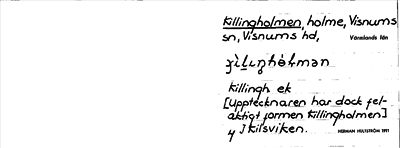 Killingholmen, holme, Visnums
sn, Visnums hd, Värmlands län
Killingh ek
[Upptecknaren har dock fel-
aktigt formen Killingholmen]
4 i Kilsviken. HERMAN HULTSTRÖM 1911